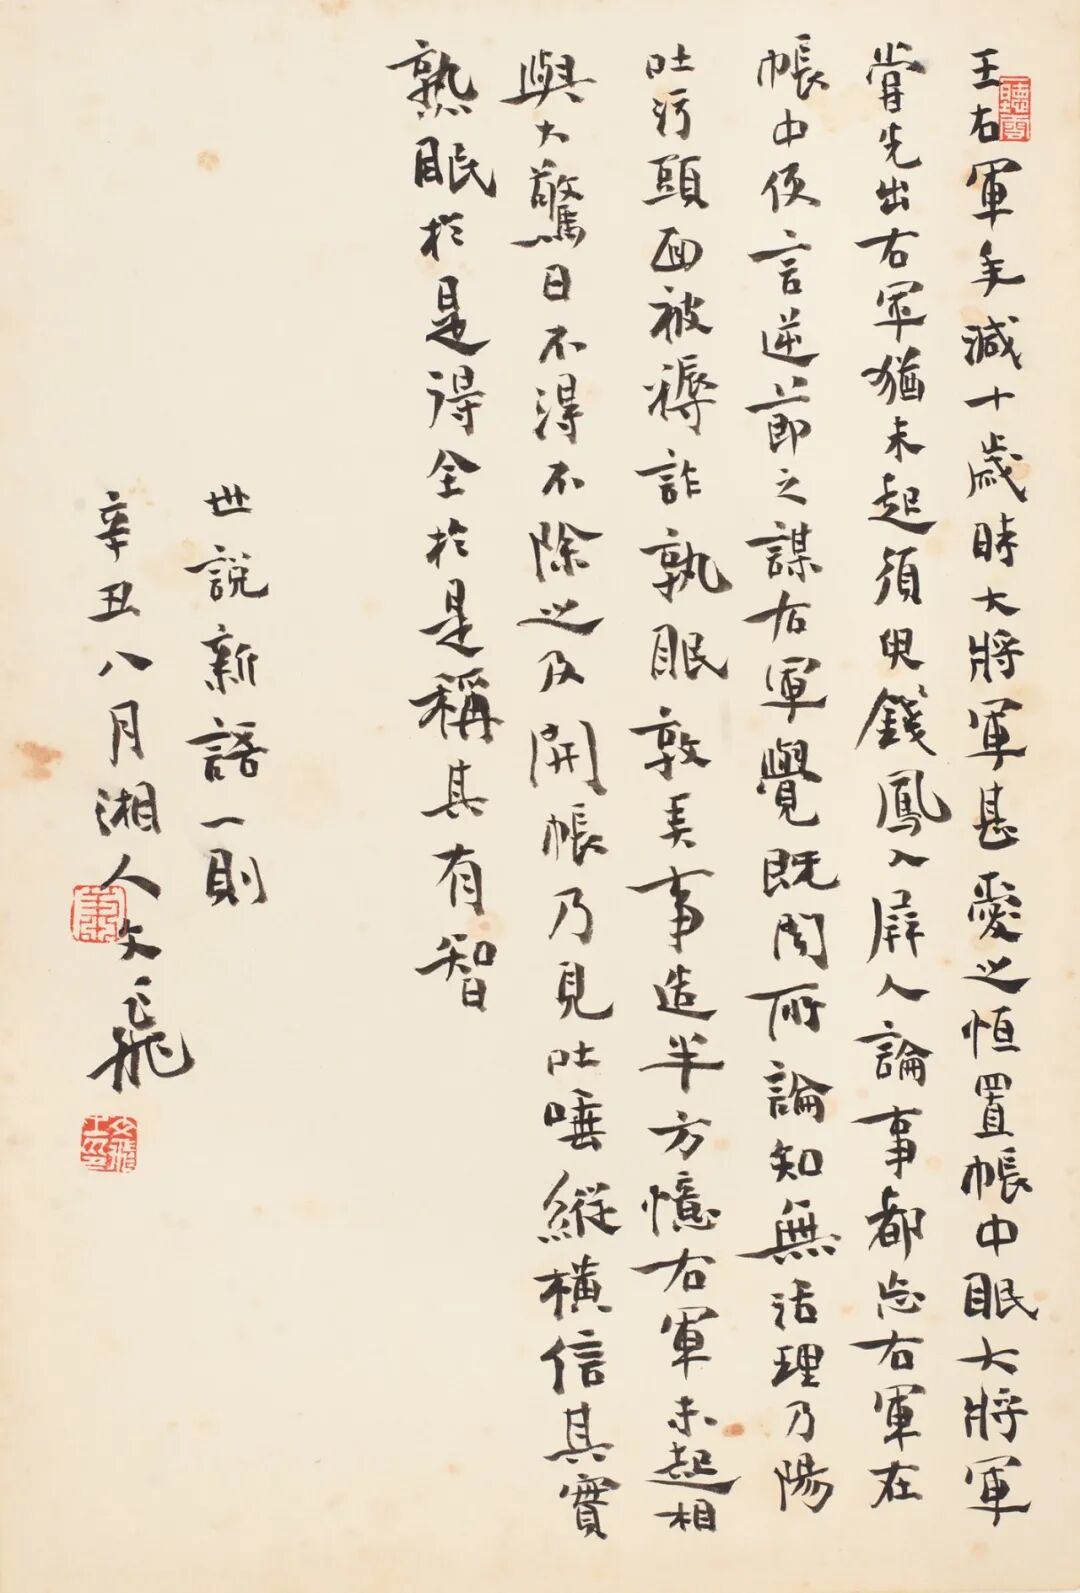 王右軍年減十歲時大將軍甚愛之恒置帳中眠大將軍
嘗先出右軍猶未起須臾錢鳳入屏人論事都忘右軍在
帳中便言逆節之謀右軍覺既聞所論知無活理乃陽
吐污頭面被褥詐孰眠敦美事造半方憶右軍未起相
與大驚曰不得不除之及開帳乃見吐唾縱橫信其實
熟眠於是得全於是稱其有智
世說新語一則
辛丑八月湘人文飛
聽雲